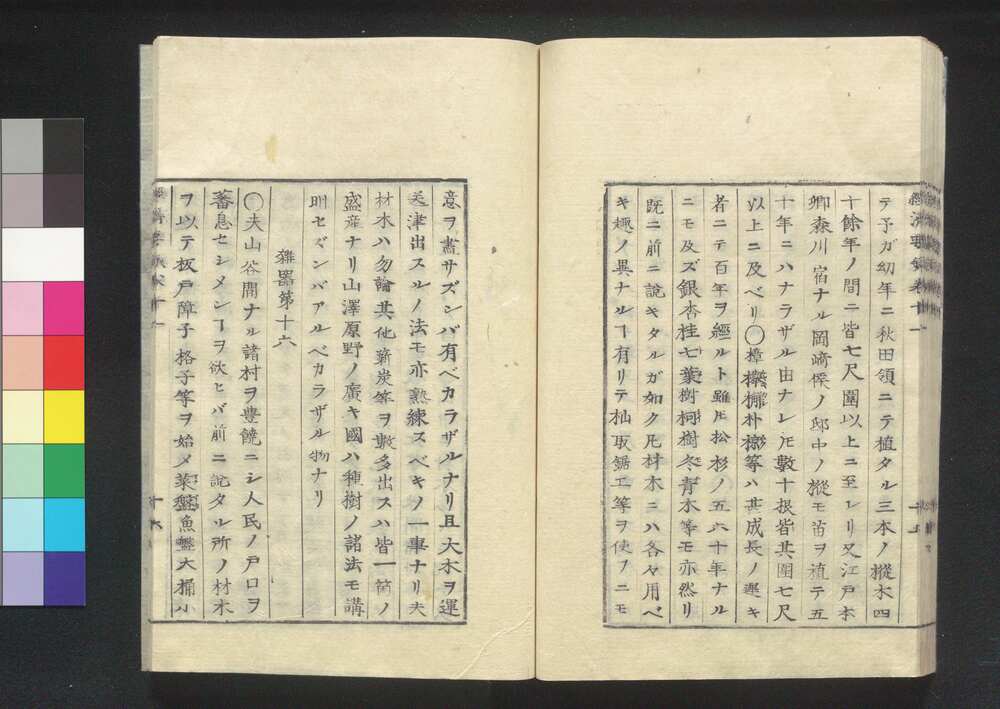 テ予ガ幼年ニ秋田領ニテ植タル三本ノ樅木四
十餘年ノ間ニ皆七尺圍以上ニ至レリ又江戸本
郷森川宿ナル岡﨑矦ノ邸中ノ樅モ苗ヲ植テ五
十年ニハナラザル由ナレ𪜈數十根皆其圍七尺
以上ニ及ベリ〇樟欅朴等ハ其成長ノ遲キ
者ニテ百年ヲ經ルト雖𪜈松杉ノ五六十年ナル
ニモ及ズ銀杏桂七葉樹柯樹冬青木等モ亦然リ
既ニ前ニ說キタルガ如ク凡材木ニハ各々用ベ
キ趣ノ異ナルヿ有リテ杣取鋸工等ヲ使フニモ
意ヲ盡サズンバ有ベカラザルナリ且大木ヲ運
送津出スルノ法モ亦熟練スベキノ一事ナリ夫
材木ハ勿論其他薪炭等ヲ數多出スハ皆一箇ノ
盛産ナリ山澤原野ノ廣キ國ハ種樹ノ諸法モ講
明セズンバアルベカラザル物ナリ
雜器第十六
〇夫山谷間ナル諸村ヲ豊饒ニシ人民ノ戸口ヲ
蕃息セシメンヿヲ欲ヒバ前ニ說タル所ノ材木
ヲ以テ板戸障子格子等ヲ始メ菜盤魚盤大桶小